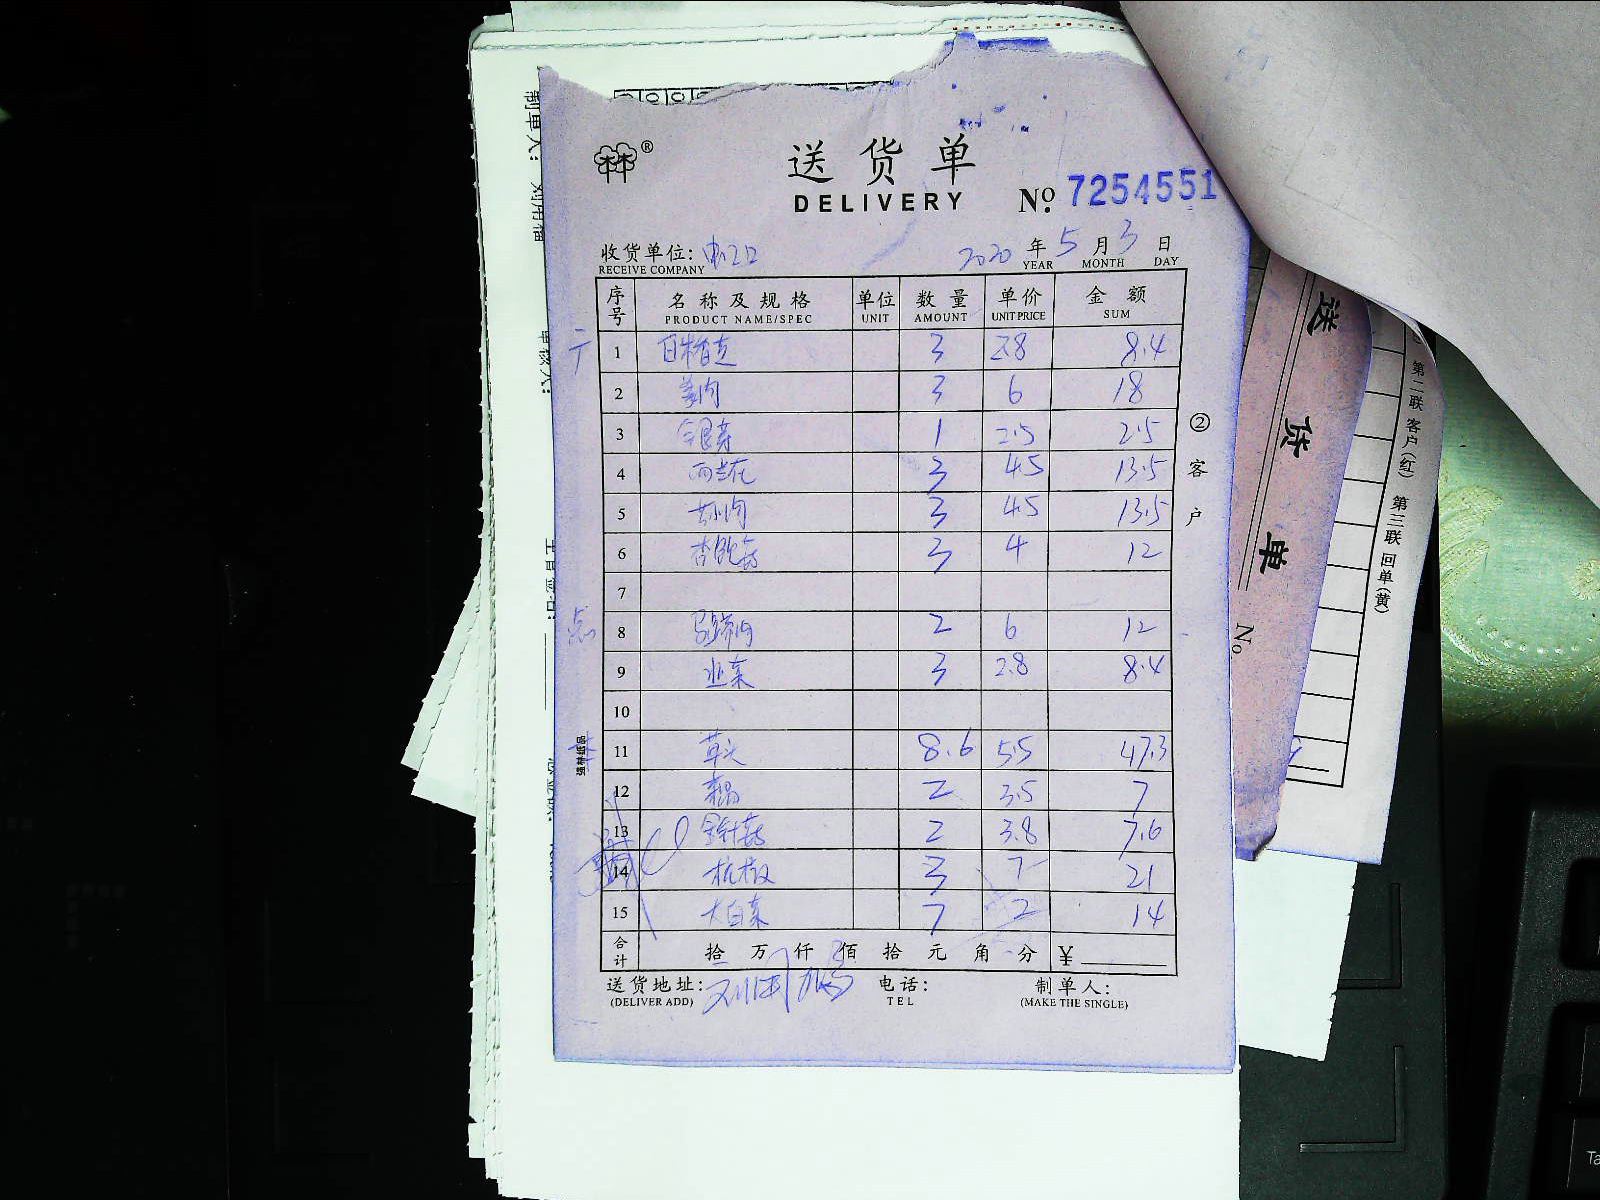 送货单
DELIVERY
№ 7254551
收货单位:
RECEIVE COMPANY
2020 年 5 月 3 日
YEAR MONTH DAY
序号 名称及规格 单位 数量 单价 金额
PRODUCT NAME/SPEC UNIT AMOUNT UNIT PRICE SUM
1 3 2.8 8.4
2 姜肉 3 6 18
3 银芽 1 2.5 2.5
4 西兰花 3 4.5 13.5
5 3 4.5 13.5
6 杏鲍菇 3 4 12
7
点
8 马蹄肉 2 6 12
9 韭菜 3 2.8 8.4
10
11 草头 8.6 5.5 47.3
12 2 3.5 7
13 金针菇 2 3.8 7.6
14 杭椒 3 7 21
15 大白菜 7 2 14
合计 拾 万 仟 佰 拾 元 角 分 ¥
送货地址: 电话: 制单人:
(DELIVER ADD) TEL (MAKE THE SINGLE)
② 客户
强林纸品
制单人:
送货单
No.
第二联 客户(红) 第三联 回单(黄)